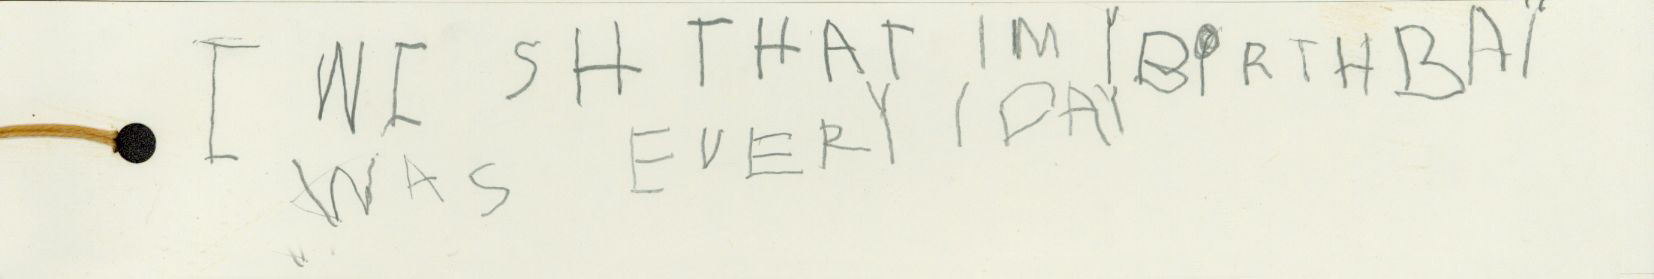 I WISH THAT IMY BIRTHBAY
WAS EVERY 1 DAY